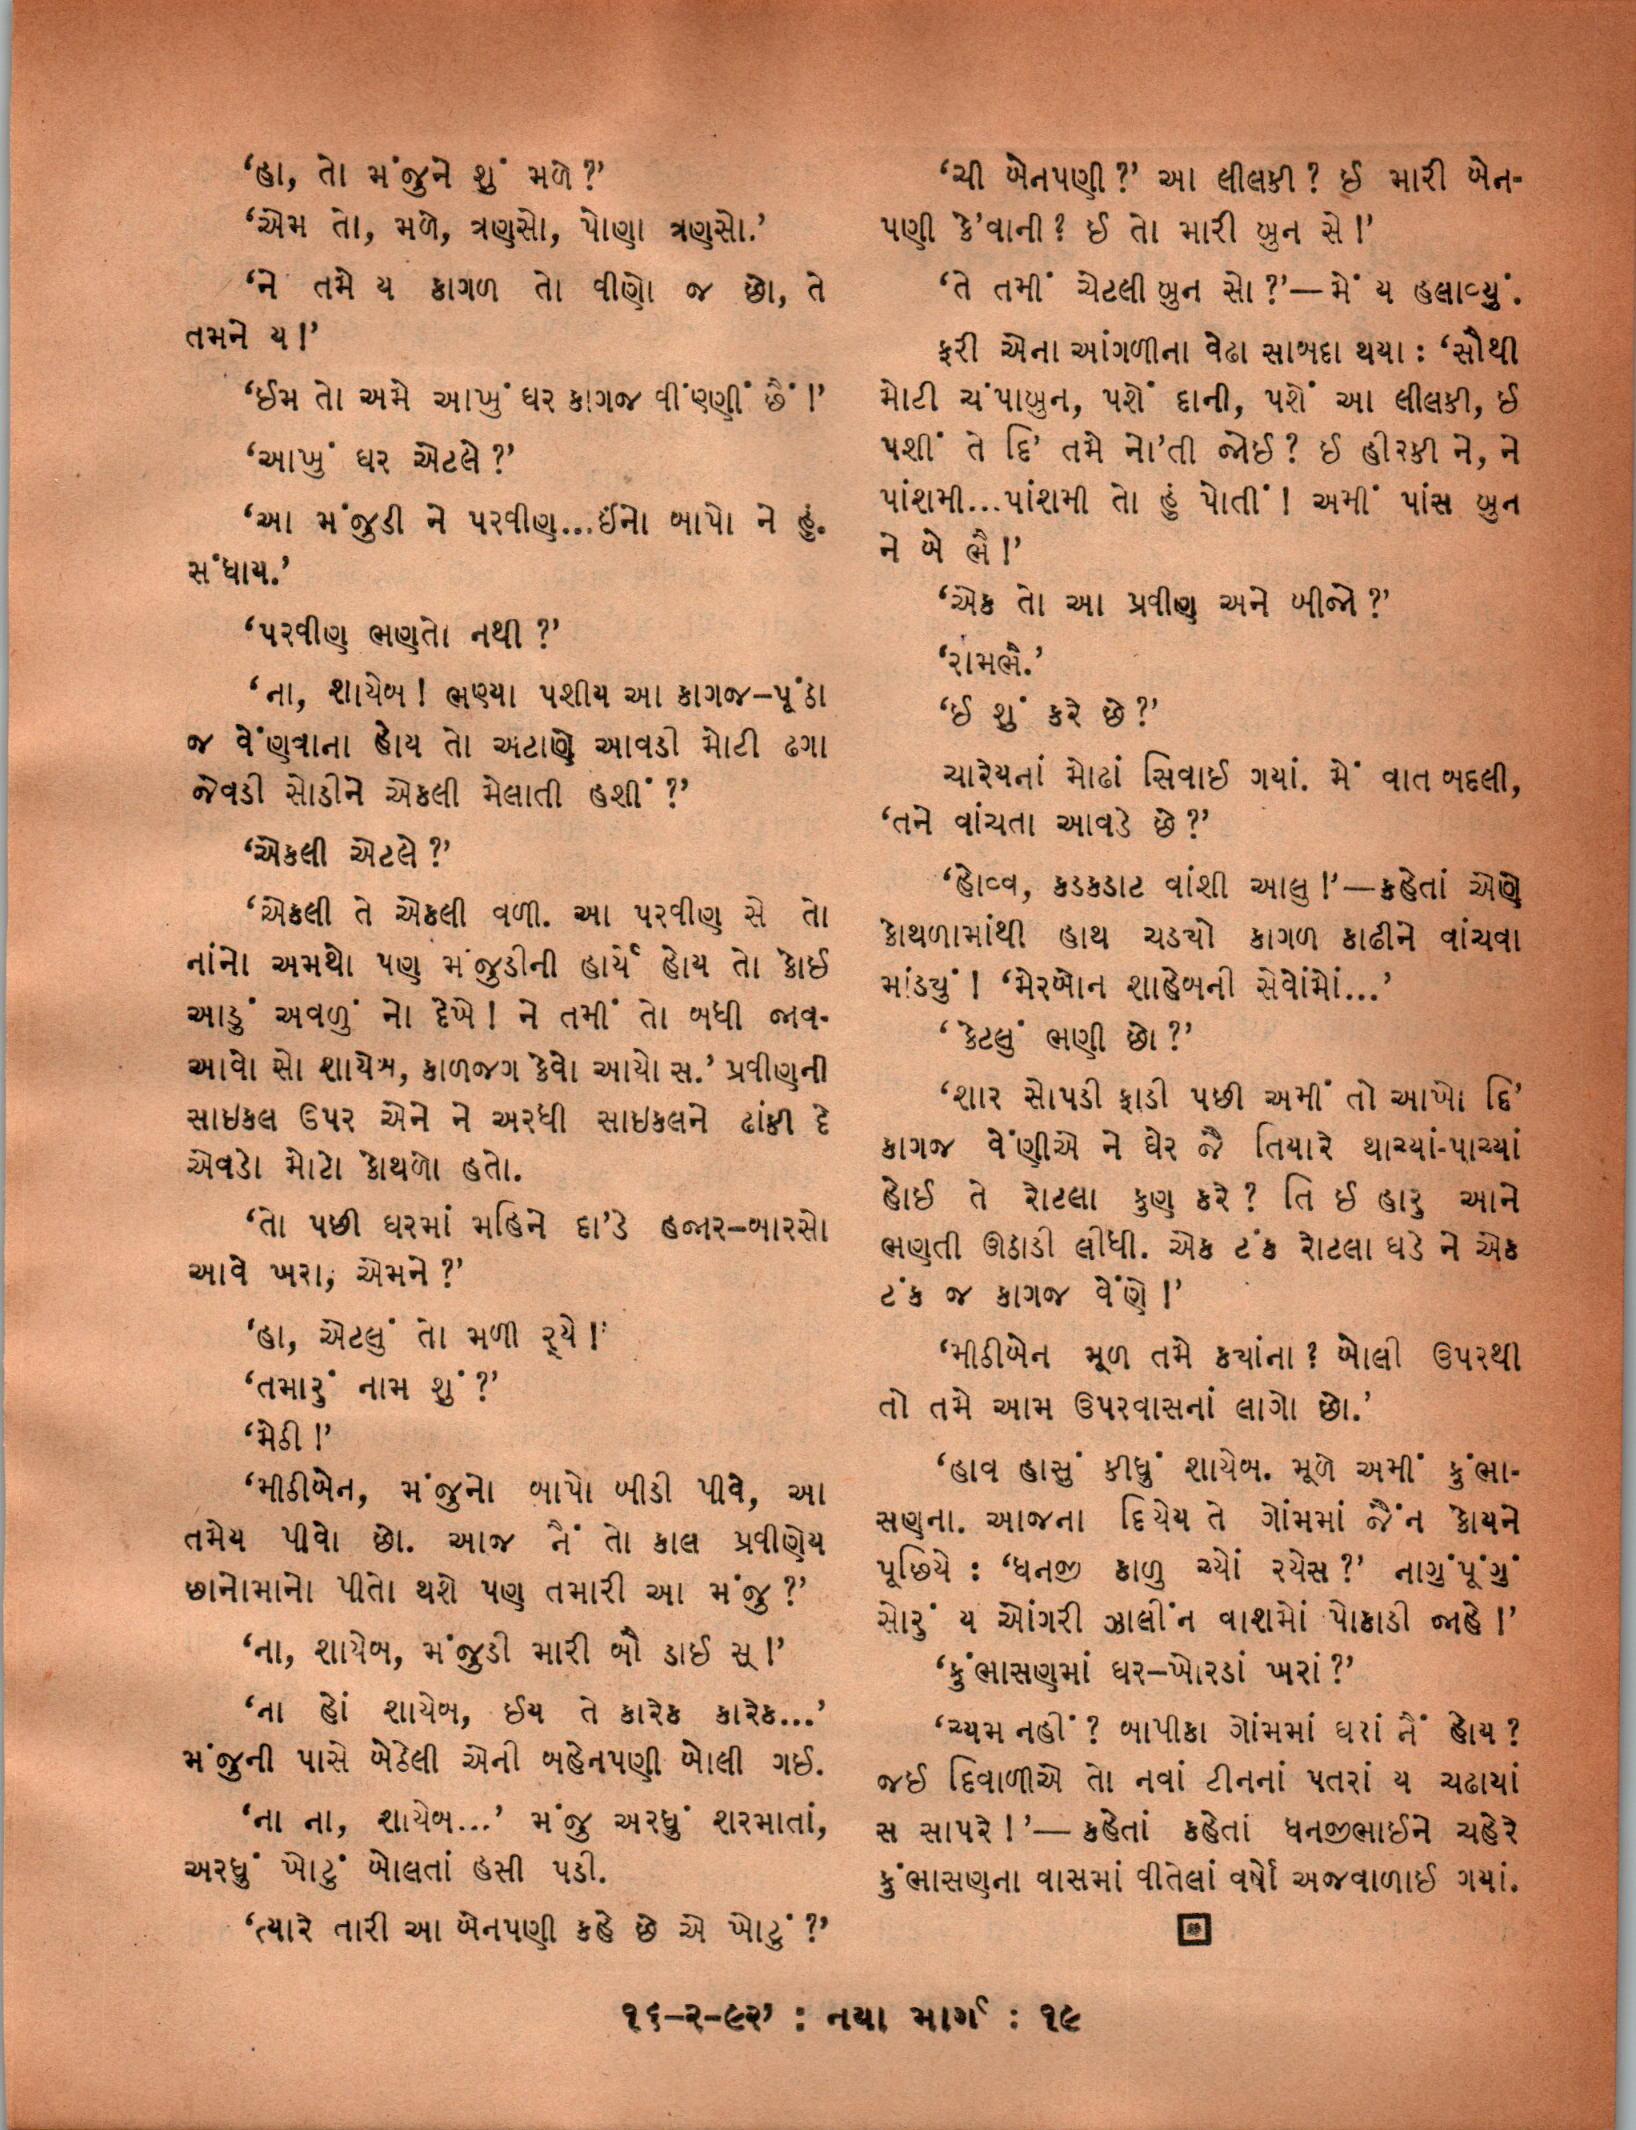 ‘હા, તો મંજુને શું મળે?’
‘એમ તો, મળે, ત્રણસો, પોણા ત્રણસો.’
‘ને તમે ય કાગળ તો વીણો જ છો, તે
તમને ય!’
‘ઈમ તો અમે આખું ઘર કાગજ વીંણ્ણીં છૈં!’
‘આખું ઘર એટલે?’
‘આ મંજુડી ને પરવીણ...ઈંનો બાપો ને હું.
સંધાય.’
‘પરવીણ ભણતો નથી?’
‘ના, શાયેબ! ભણ્યા પશીય આ કાગજ–પૂંઠા
જ વેંણવાના હોય તો અટાણે આવડી મોટી ઢગા
જેવડી સોડીને એકલી મેલાતી હશીં?’
‘એકલી એટલે?’
‘એકલી તે એકલી વળી. આ પરવીણ સે તો
નાંનો અમથો પણ મંજુડીની હાર્યે હોય તો કોઈ
આડું અવળું નો દેખે! ને તમીં તો બધી જાવ-
આવો સો શાયેબ, કાળજગ કેવો આયો સ.’ પ્રવીણની
સાઇકલ ઉપર એને ને અરધી સાઇકલને ઢાંકી દે
એવડો મોટો કોથળો હતો.
‘તો પછી ઘરમાં મહિને દા’ડે હજાર–બારસો
આવે ખરા, એમને?’
‘હા, એટલું તો મળી ર્‌યે!’
‘તમારું નામ શું?’
‘મેઠી!’
‘મીઠીબેન, મંજુનો બાપો બીડી પીવે, આ
તમેય પીવો છો. આજ નૈં તો કાલ પ્રવીણેય
છાનોમાનો પીતો થશે પણ તમારી આ મંજુ?’
‘ના, શાયેબ, મંજુડી મારી બૌ ડાઈ સ્!’
‘ના હોં શાયેબ, ઈય તે કારેક કારેક...’
મંજુની પાસે બેઠેલી એની બહેનપણી બોલી ગઈ.
‘ના ના, શાયેબ...’ મંજુ અરધું શરમાતાં,
અરધું ખોટું બોલતાં હસી પડી.
‘ત્યારે તારી આ બેનપણી કહે છે એ ખોટું?’
‘ચી બેનપણી?’ આ લીલકી? ઈ મારી બેન-
પણી કે’વાની? ઈ તો મારી બુન સે!’
‘તે તમીં ચેટલી બુન સો?’—મેં ય હલાવ્યું.
ફરી એના આંગળીના વેઢા સાબદા થયા : ‘સૌથી
મોટી ચંપાબુન, પશેં દાની, પશેં આ લીલકી, ઈ
પશીં તે દિ’ તમે નો’તી જોઈ? ઈ હીરકી ને, ને
પાંશમી...પાંશમી તો હું પોતીં! અમીં પાંસ બુન
ને બે ભૈ!’
‘એક તો આ પ્રવીણ અને બીજો?’
‘રામભૈ.’
‘ઈ શું કરે છે?’
ચારેયનાં મોઢાં સિવાઈ ગયાં. મેં વાત બદલી,
‘તને વાંચતા આવડે છે?’
‘હોવ્વ, કડકડાટ વાંશી આલુ!’—કહેતાં એણે
કોથળામાંથી હાથ ચડ્યો કાગળ કાઢીને વાંચવા
માંડ્યું! ‘મેરબોન શાહેબની સેવોંમોં...’
‘કેટલું ભણી છો?’
‘શાર સોપડી ફાડી પછી અમીં તો આખો દિ’
કાગજ વેંણીએ ને ઘેર જૈ તિયારે થાચ્યાં-પાચ્યાં
હોઈ તે રોટલા કુણ કરે? તિ ઈ હારુ આને
ભણતી ઊઠાડી લીધી. એક ટંક રોટલા ઘડે ને એક
ટંક જ કાગજ વેંણે!’
‘મીઠીબેન મૂળ તમે કયાંના? બોલી ઉપરથી
તો તમે આમ ઉપરવાસનાં લાગો છો.’
‘હાવ હાસું કીધું શાયેબ. મૂળે અમીં કુંભા-
સણના. આજના દિયેય તે ગોંમમાં જૈંન કોયને
પૂછિયે : ‘ધનજી કાળુ ચ્યોં રયેસ?’ નાગુંપૂંગું
સોરું ય ઓંગરી ઝાલીંન વાશમોં પોકાડી જાહે!’
‘કુંભાસણમાં ઘર–ખોરડાં ખરાં?’
‘ચ્યમ નહીં? બાપીકા ગોંમમાં ઘરાં નૈં હોય?
જઈ દિવાળીએ તો નવાં ટીનનાં પતરાં ય ચઢાયાં
સ સાપરે!’—કહેતાં કહેતાં ધનજીભાઈને ચહેરે
કુંભાસણના વાસમાં વીતેલાં વર્ષો અજવાળાઈ ગયાં.
૧૬–૨–૯૨’ : નયા માર્ગ : ૧૯